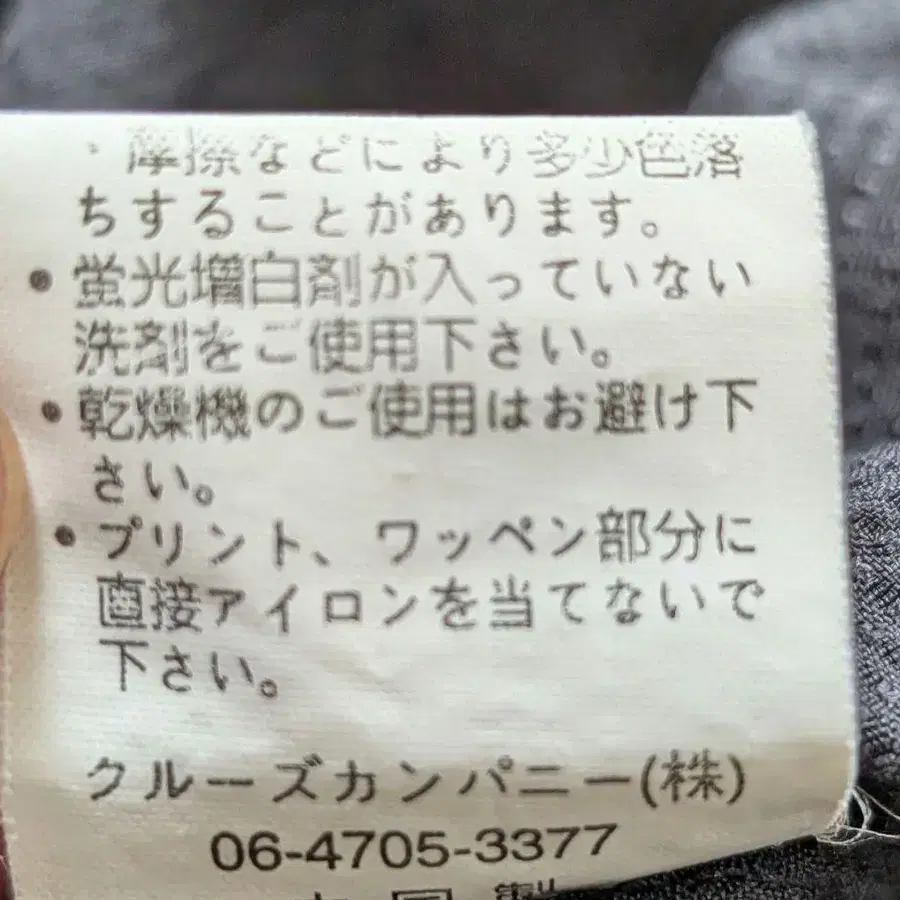 ・摩擦などにより多少色落
ちすることがあります。
●蛍光増白剤が入っていない
洗剤をご使用下さい。
●乾燥機のご使用はお避け下
さい。
●プリント、ワッペン部分に
直接アイロンを当てないで
下さい。
クルーズカンパニー(株)
06-4705-3377